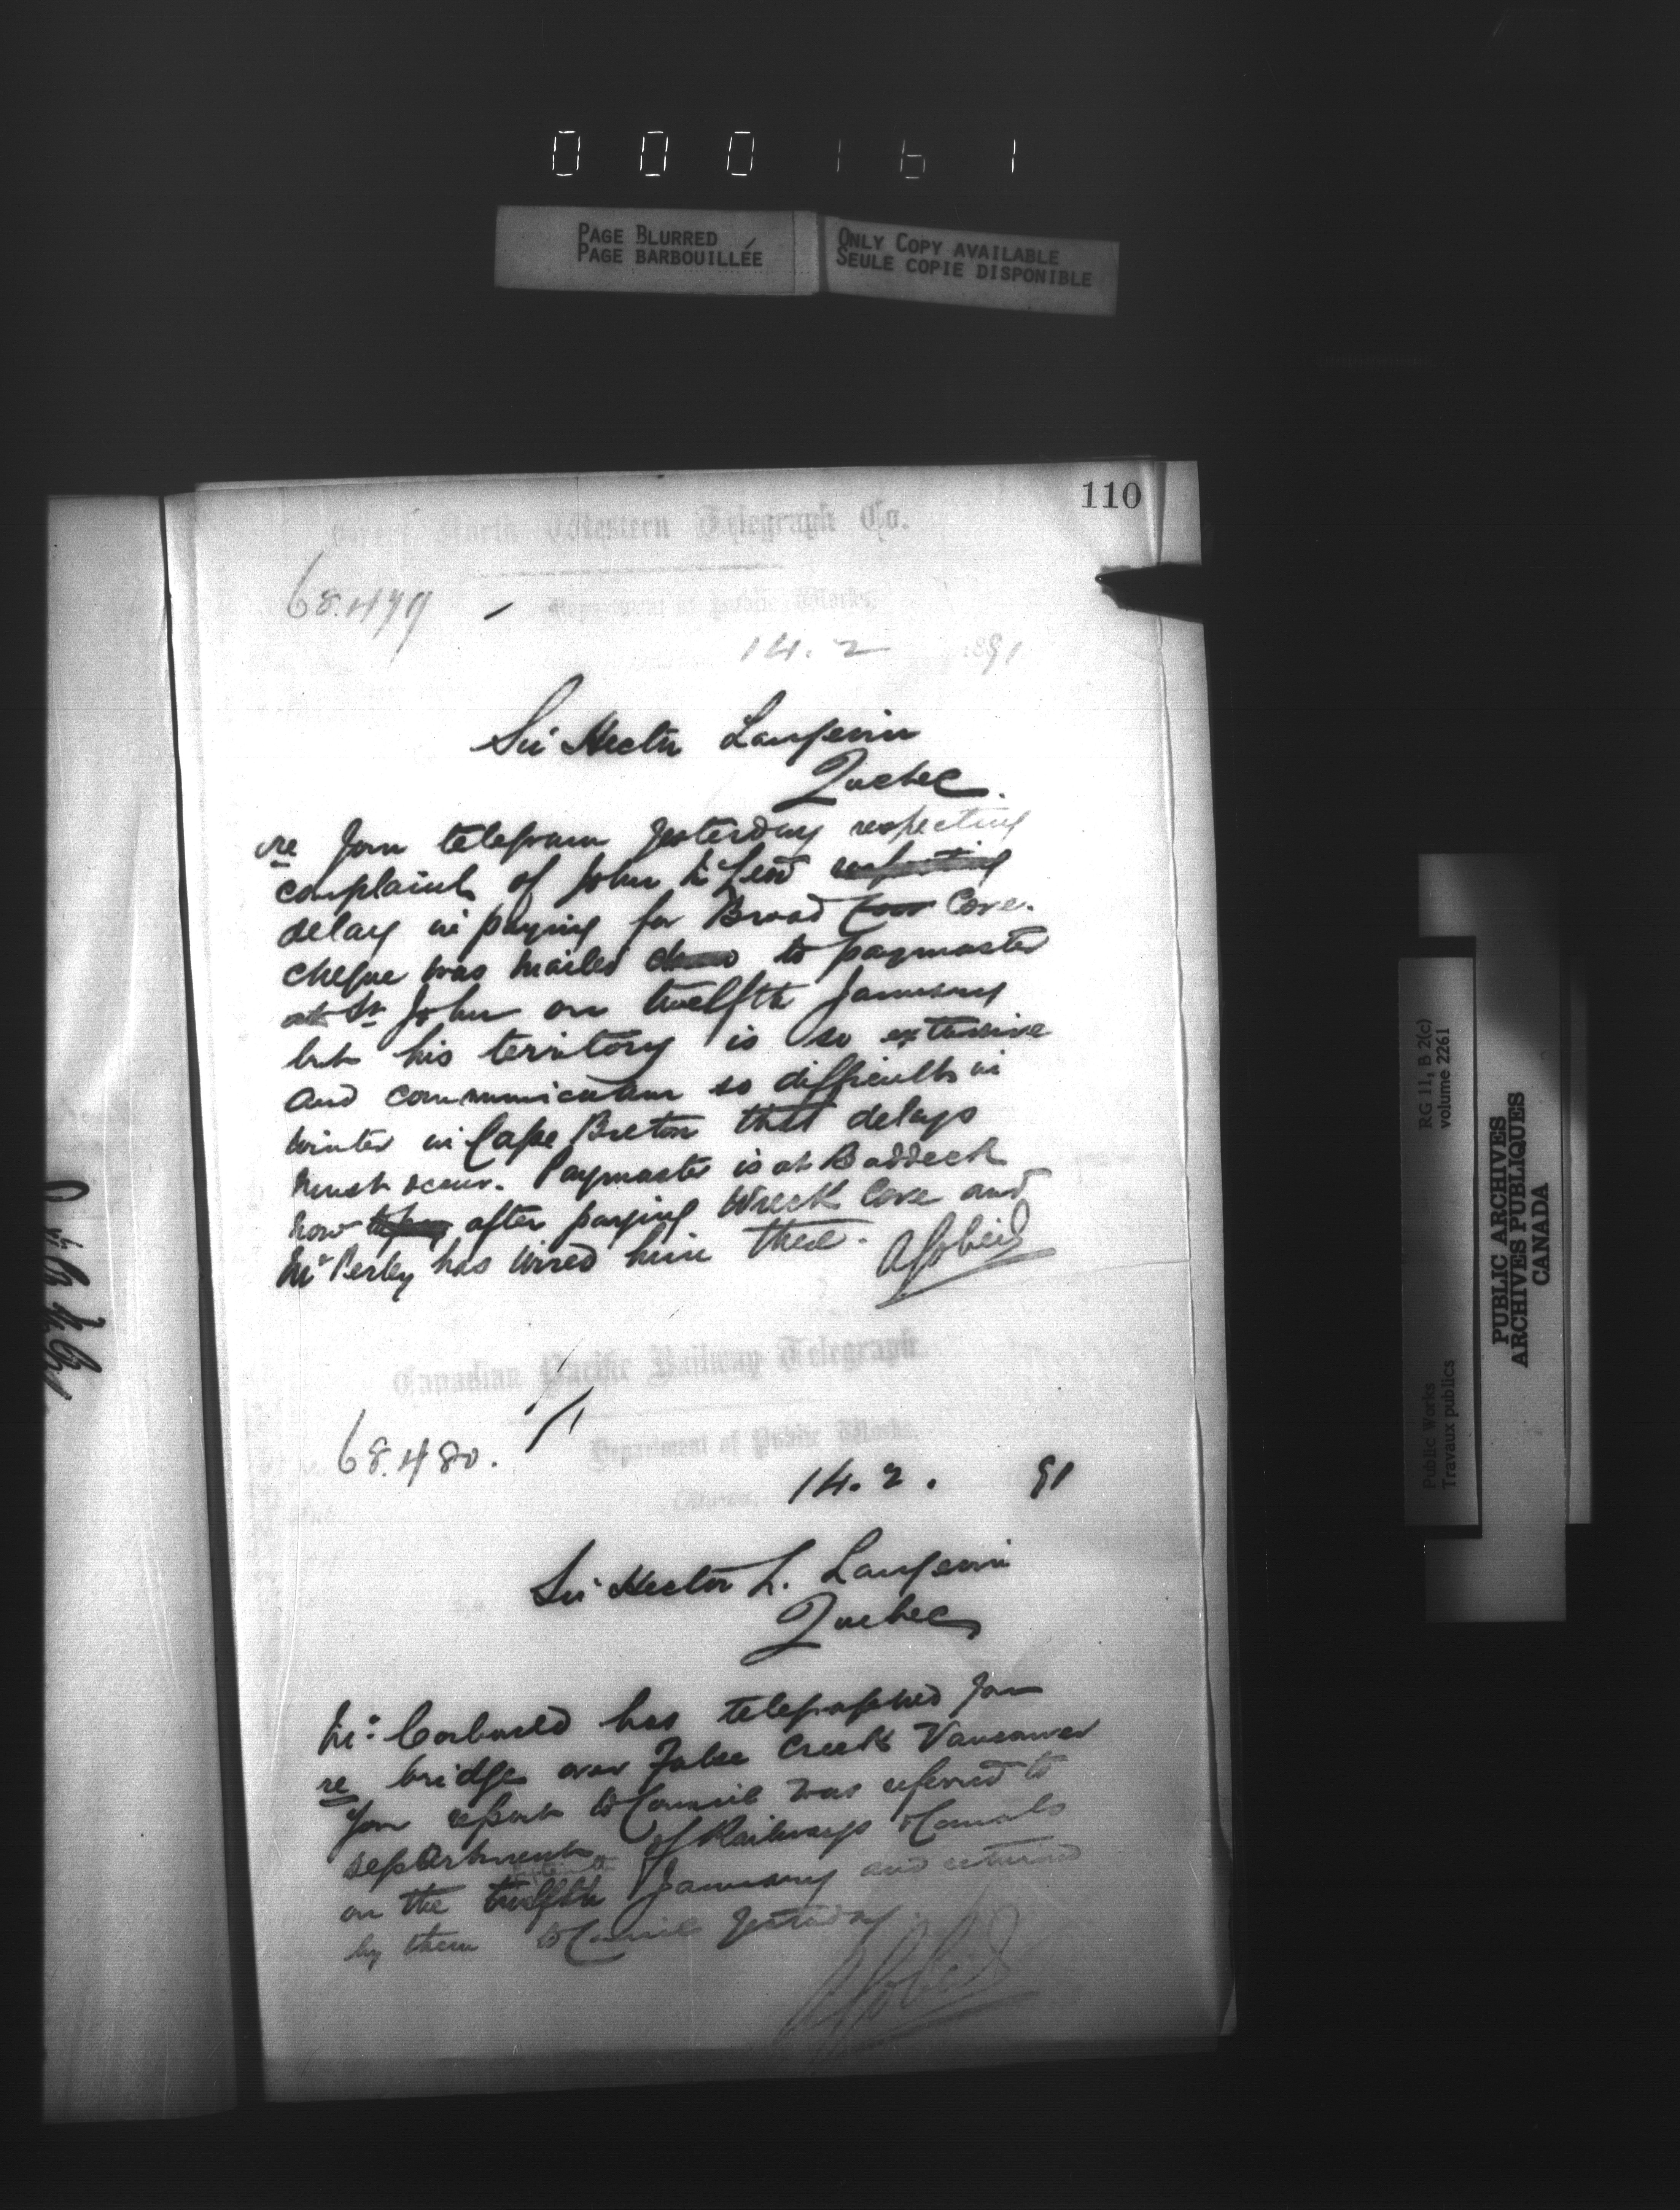 000161
PAGE BLURRED
PAGE BARBOUILLÉE
ONLY COPY AVAILABLE
SEULE COPIE DISPONIBLE
110
North Western Telegraph Co.
68.479
Department of Public Works.
14.2 1891
Sir Hector Langevin
Quebec.
re your telegram yesterday respecting
complaint of John McLeod respecting
delay in paying for Broad Cove.
cheque was mailed to paymaster
at St John on twelfth January
but his territory is so extensive
and communication so difficult in
winter in Cape Breton that delays
must occur. Paymaster is at Baddeck
now after paying Wreck Cove and
Mr Perley has wired him there. A Gobeil
Canadian Pacific Railway Telegraph.
68.480.
Department of Public Works.
Ottawa,
14.2. 91
Sir Hector L. Langevin
Quebec
Mr Corbould has telegraphed you
re bridge over False Creek Vancouver
your report to Council was referred to
department of Railways & Canals
on the twelfth January and returned
by them to Council yesterday.
A Gobeil
RG 11, B 2(c)
volume 2261
Public Works
Travaux publics
PUBLIC ARCHIVES
ARCHIVES PUBLIQUES
CANADA